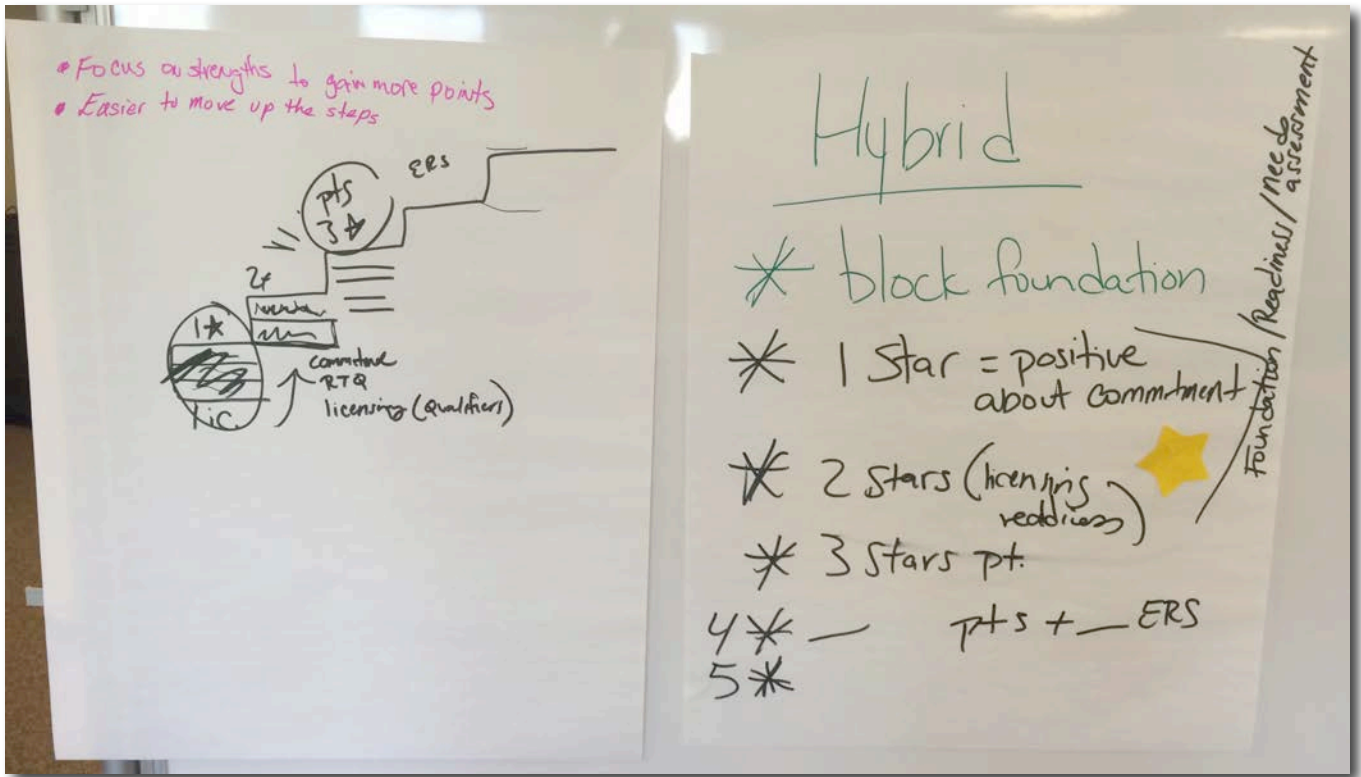 • Focus on strengths to gain more points
• Easier to move up the steps
ERS
pts
3☆
2☆
1☆
Lic.
RTQ
licensing (Qualifiers)
Hybrid
* block foundation
* 1 Star = positive
about commitment
* 2 Stars (licensing
* 3 Stars pt.
4* — pts + __ ERS
5*
Foundation / Readiness / need
assessment